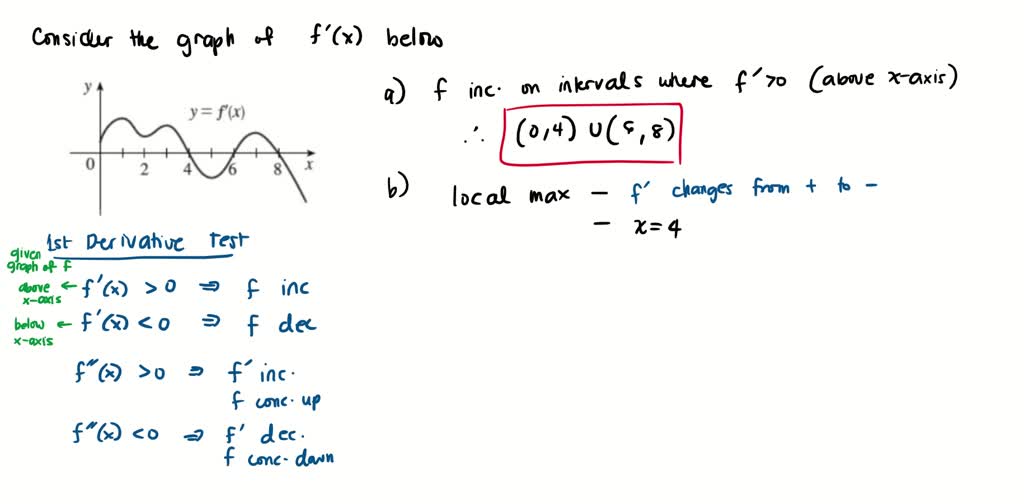 Consider the graph of f'(x) below
y
y = f'(x)
0 2 4 6 8 x
a) f inc. on intervals where f' >0 (above x-axis)
∴ (0,4) ∪ (5,8)
b) local max – f' changes from + to –
– x=4
1st Derivative Test
given
graph of f
above ← f'(x) > 0 ⇒ f inc
x-axis
below ← f'(x) < 0 ⇒ f dec
x-axis
f"(x) >0 ⇒ f' inc.
f conc. up
f"(x) <0 ⇒ f' dec.
f conc. down